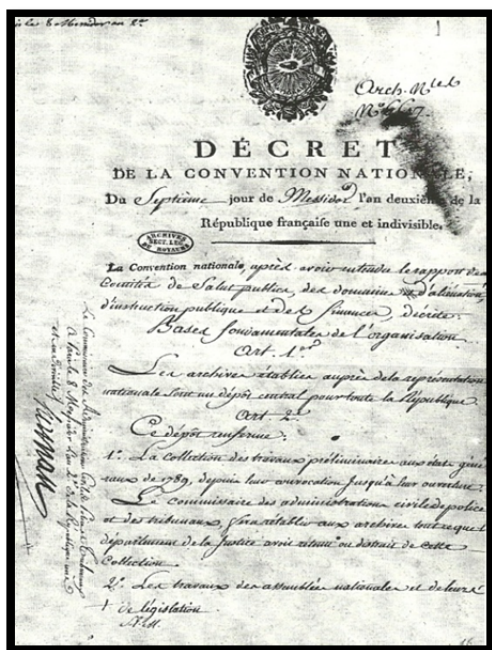 Arch. Nles
DÉCRET
DE LA CONVENTION NATIONALE,
Du Septième jour de Messidor l'an deuxième de la
République française une et indivisible.
ARCHIVES
SECT. LEG.
DU ROYAUME
La Convention nationale, après avoir entendu le rapport des
Comités de Salut public, des domaines et d'aliénation,
d'instruction publique et des finances, décrète:
Bases fondamentales de l'organisation
Art. 1er
Les archives établies auprès de la représentation
nationale sont un dépôt central pour toute la République.
Art. 2.
Ce dépôt renferme:
1º. La collection des travaux préliminaires aux états géné-
raux de 1789, depuis leur convocation jusqu'à leur ouverture.
Le commissaire des administrations civiles de police
et des tribunaux, fera rétablir aux archives tout ce que le
département de la Justice avoit retenu ou distrait de cette
collection.
2º. Les travaux des assemblées nationales et de leurs